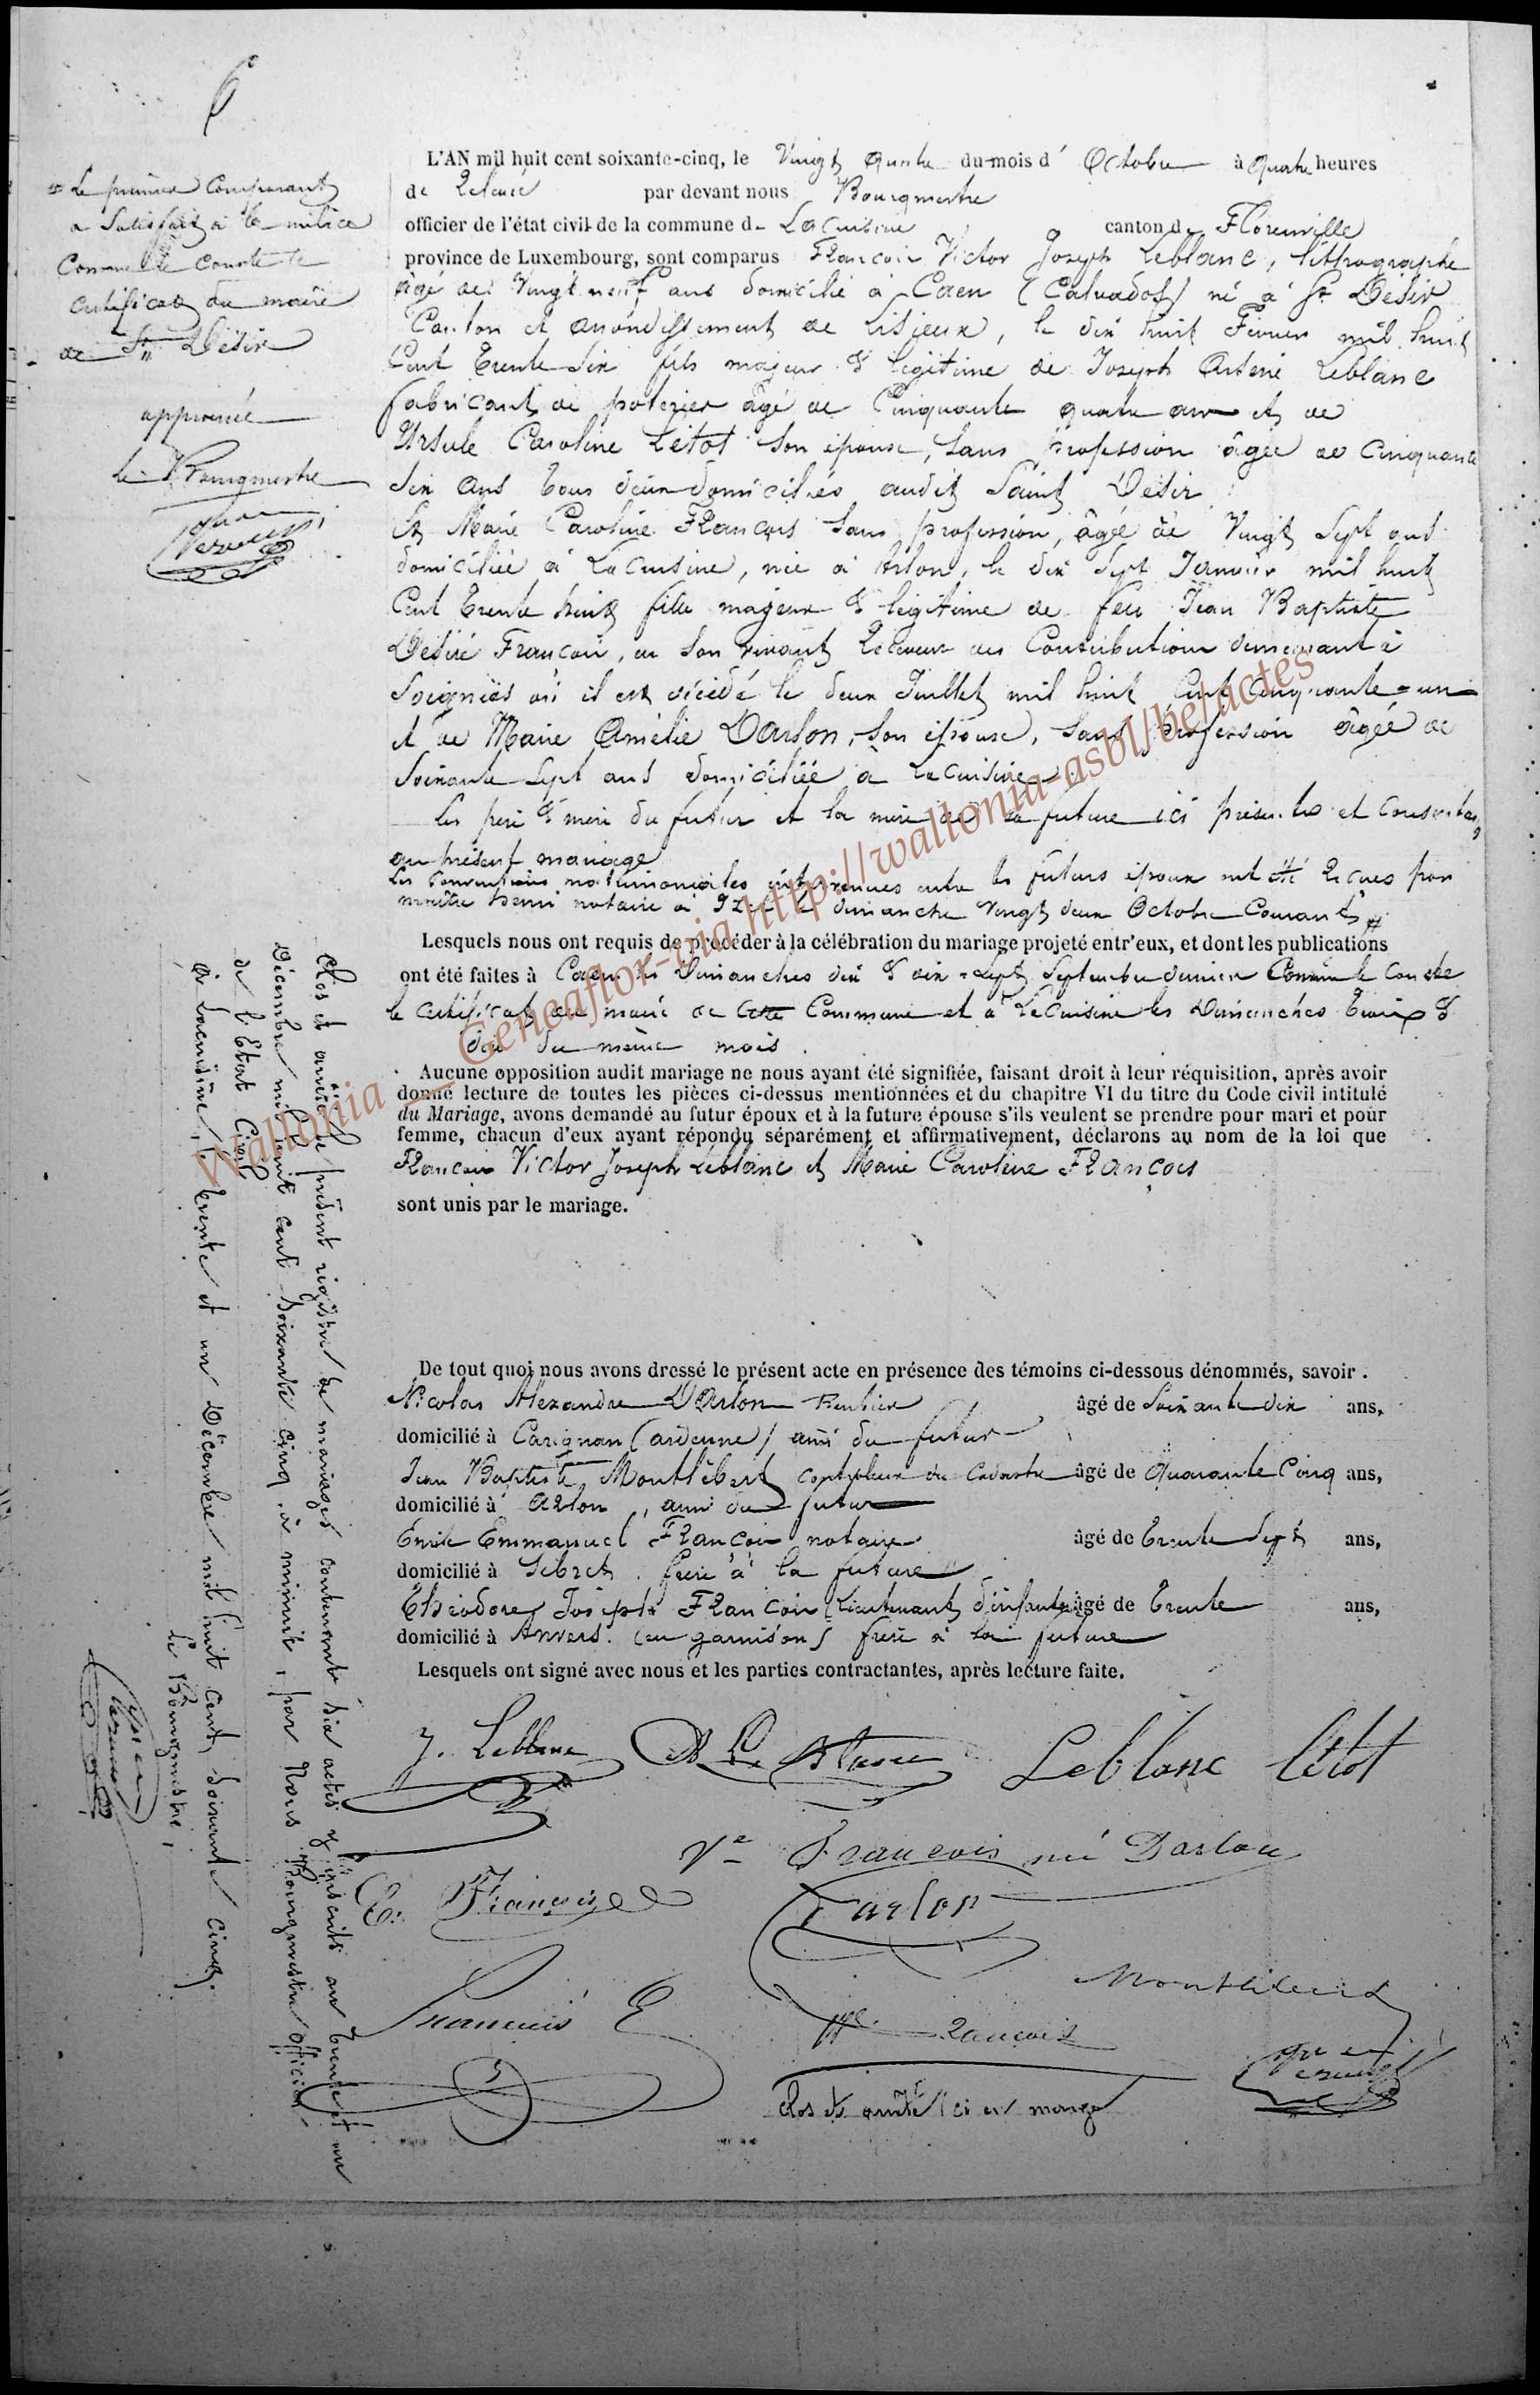 6
L'AN mil huit cent soixante-cinq, le Vingt quatre du mois d'Octobre à quatre heures
de Relevée par devant nous Bourgmestre
officier de l'état civil de la commune de Lacuisine canton de Florenville
province de Luxembourg, sont comparus François Victor Joseph Leblanc, lithographe
âgé de Vingt neuf ans domicilié à Caen (Calvados) né à St Désir
Canton et arrondissement de Lisieux, le dix huit Février mil huit
Cent Trente Six fils majeur & légitime de Joseph Arsène Leblanc
fabricant de poteries âgé de Cinquante quatre ans et de
Ursule Caroline Létot son épouse, sans profession âgée de Cinquante
Six ans tous deux domiciliés audit Saint Désir
Et Marie Caroline François sans profession, âgée de Vingt Sept ans
domiciliée à Lacuisine, née à Arlon, le dix Sept Janvier mil huit
Cent Trente huit fille majeure & légitime de feu Jean Baptiste
Désiré François, en son vivant Receveur des Contributions demeurant à
Soignies où il est décédé le deux Juillet mil huit Cent Cinquante-un
et de Marie Amélie Darlon, son épouse, sans profession âgée de
Soixante-Sept ans domiciliée à Lacuisine
Les père & mère du futur et la mère de la future ici présents et consentant
au présent mariage
Les conventions matrimoniales intervenues entre les futurs époux ont été reçues par
maître Henri notaire à Izel le dimanche Vingt deux Octobre Courant #
Lesquels nous ont requis de procéder à la célébration du mariage projeté entr'eux, et dont les publications
ont été faites à Caen les Dimanches dix & dix-sept Septembre dernier Comme le Conste
le certificat du maire de cette Commune et à Lacuisine les Dimanches trois &
dix du même mois.
Aucune opposition audit mariage ne nous ayant été signifiée, faisant droit à leur réquisition, après avoir
donné lecture de toutes les pièces ci-dessus mentionnées et du chapitre VI du titre du Code civil intitulé
du Mariage, avons demandé au futur époux et à la future épouse s'ils veulent se prendre pour mari et pour
femme, chacun d'eux ayant répondu séparément et affirmativement, déclarons au nom de la loi que
François Victor Joseph Leblanc et Marie Caroline François
sont unis par le mariage.
De tout quoi nous avons dressé le présent acte en présence des témoins ci-dessous dénommés, savoir.
Nicolas Alexandre Darlon Rentier âgé de Soixante dix ans,
domicilié à Carignan (ardenne) ami du futur
Jean Baptiste Monthébert contrôleur du Cadastre âgé de Quarante Cinq ans,
domicilié à Arlon, ami du futur
Emile Emmanuel François notaire âgé de Trente Sept ans,
domicilié à Sibret. frère à la future
Théodore Joseph François Lieutenant d'infanterie âgé de Trente ans,
domicilié à Anvers. (en garnison) frère à la future
Lesquels ont signé avec nous et les parties contractantes, après lecture faite.
J. Leblanc Leblanc Létot
Ve François née Darlon
C. François Darlon
François E
François
Clos et arrêté ci en marge
# Le premier Comparant
a Satisfait à la milice
Comme le Conste le
certificat du maire
de St Désir
approuvé
Le Bourgmestre
Clos et arrêté le présent registre de mariages contenant six actes y inscrits au trente et un
Décembre mil huit cent soixante cinq, à minuit, par Nous Bourgmestre officier
de l'Etat Civil
à Lacuisine, le trente et un Décembre mil huit cent soixante cinq.
Le Bourgmestre,
Wallonia - Geneaflor-via http://wallonia-asbl/be/actes